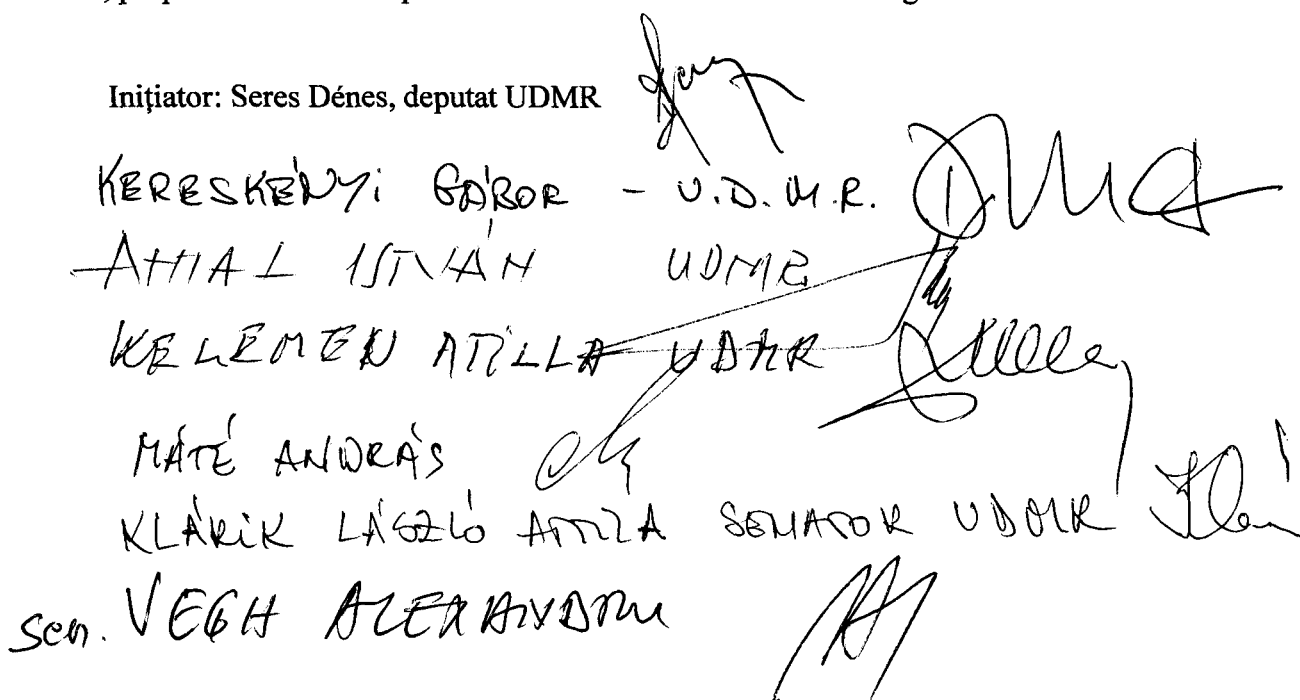 Inițiator: Seres Dénes, deputat UDMR
KERESKÉNYI GÁBOR - U.D.M.R.
ANTAL ISTVÁN UDMR
KELEMEN ATILLA UDMR
MÁTÉ ANDRÁS
KLÁRIK LÁSZLÓ ATTILA SENATOR UDMR
sen. VEGH ALEXANDRU